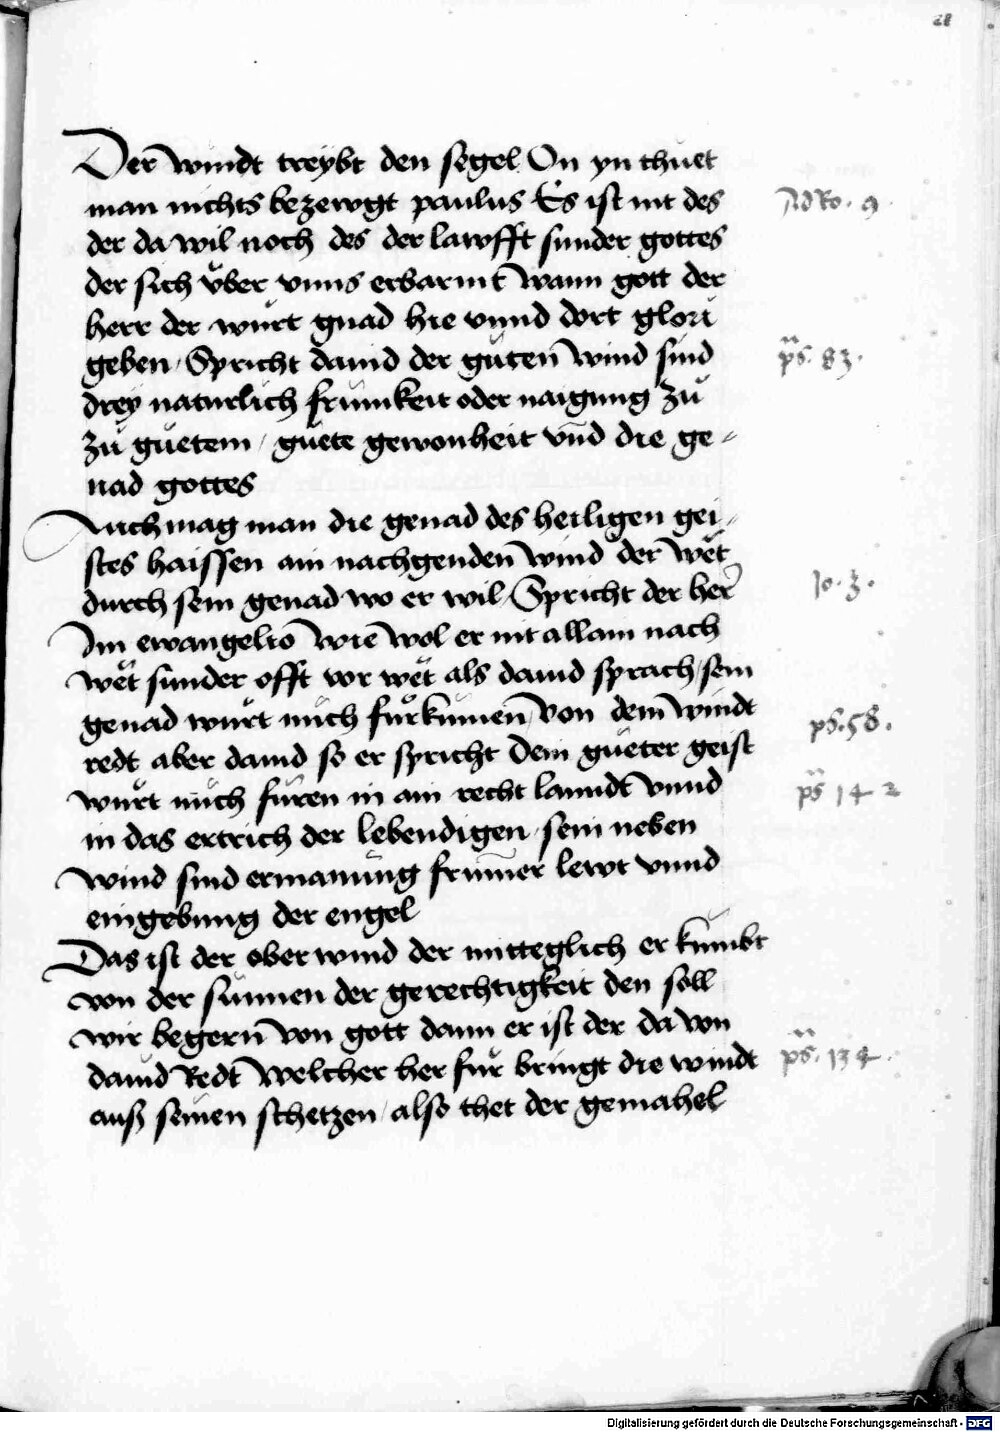 Der windt treybt den segel On yn thuet
man nichts bezewgt paulus Es ist nit des
der da wil noch des der lawfft sunder gottes
der sich vͤber vnns erbarmt wann gott der
herr der wuͤrt gnad hie vnnd dort glori
geben / Spricht dauid der guͤten wind sind
drey naturlich frumkeit oder naigung zuͦ
zuͦ guͤetem / guͤete gewonheit vnd die ge=
nad gottes
Auch mag man die genad des heiligen gei=
stes haissen ain nachgenden wind der weͤt
durch sein genad wo er wil / Spricht der her
Im ewangelio wie wol er nit allain nach
weͤt sunder offt vor weͤt als dauid sprach / sein
genad wuͤrt mich fuͤrkumen / von dem windt
redt aber dauid so er spricht Dein guͤeter geist
wuͤrt mich fuͤren in ain recht lanndt vnnd
in das ertrich der lebendigen / sein neben
wind sind ermanung frummer lewt vnnd
eingebung der engel
Das ist der ober wind der mitteglich er kumbt
von der sunnen der gerechtigkeit den soll
wir begern von gott dann er ist der da von
dauid Redt welcher her fuͤr bringt die windt
auß seinen schetzen / also thet der gemahel
Ad Ro. 9
ps. 83.
Jo. 3.
ps. 58.
ps 142
ps. 134.
Digitalisierung gefördert durch die Deutsche Forschungsgemeinschaft - DFG